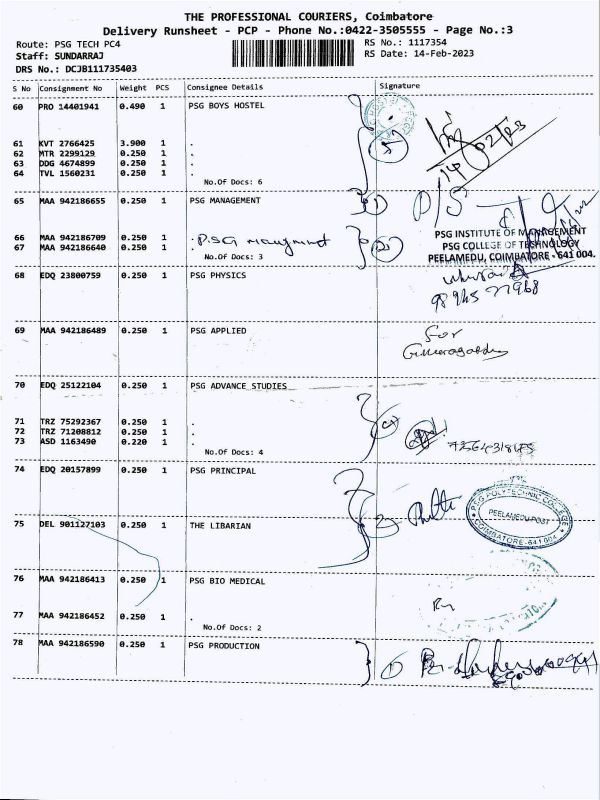 THE PROFESSIONAL COURIERS, Coimbatore
Delivery Runsheet - PCP - Phone No.:0422-3505555 - Page No.:3
Route: PSG TECH PC4 RS No.: 1117354
Staff: SUNDARRAJ RS Date: 14-Feb-2023
DRS No.: DCJB111735403
S No Consignment No Weight PCS Consignee Details Signature
60 PRO 14401941 0.490 1 PSG BOYS HOSTEL
61 KVT 2766425 3.900 1 .
62 MTR 2299129 0.250 1 .
63 DDG 4674899 0.250 1 .
64 TVL 1560231 0.250 1 .
No.Of Docs: 6
14/02/23
65 MAA 942186655 0.250 1 PSG MANAGEMENT
66 MAA 942186709 0.250 1 .
67 MAA 942186640 0.250 1 .
No.Of Docs: 3
PSG INSTITUTE OF MANAGEMENT
PSG COLLEGE OF TECHNOLOGY
PEELAMEDU, COIMBATORE - 641 004.
68 EDQ 23800759 0.250 1 PSG PHYSICS
69 MAA 942186489 0.250 1 PSG APPLIED
For
70 EDQ 25122104 0.250 1 PSG ADVANCE STUDIES
71 TRZ 75292367 0.250 1 .
72 TRZ 71208812 0.250 1 .
73 ASD 1163490 0.220 1 .
No.Of Docs: 4
74 EDQ 20157899 0.250 1 PSG PRINCIPAL
PSG POLYTECHNIC COLLEGE
PEELAMEDU POST
COIMBATORE-641 004
75 DEL 901127103 0.250 1 THE LIBARIAN
76 MAA 942186413 0.250 1 PSG BIO MEDICAL
77 MAA 942186452 0.250 1 .
No.Of Docs: 2
78 MAA 942186590 0.250 1 PSG PRODUCTION